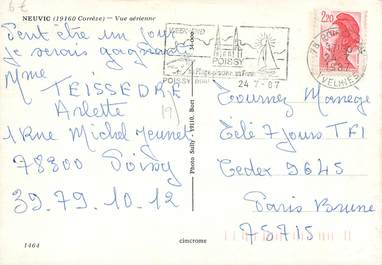 6€
NEUVIC (19160 Corrèze) — Vue aérienne
Peut être un jour
je serais gagnante
Mme
TEISSEDRE
Arlette
1 Rue Michel Jeunet
78300 Poissy
39.79.10.12
1464
Photo Sully 19110. Bort
cimcrome
WEEK-END
POISSY
24 7-87
2,20
Tournez Manège
Télé 7 jours TF1
Cedex 9645
Paris Brune
75715